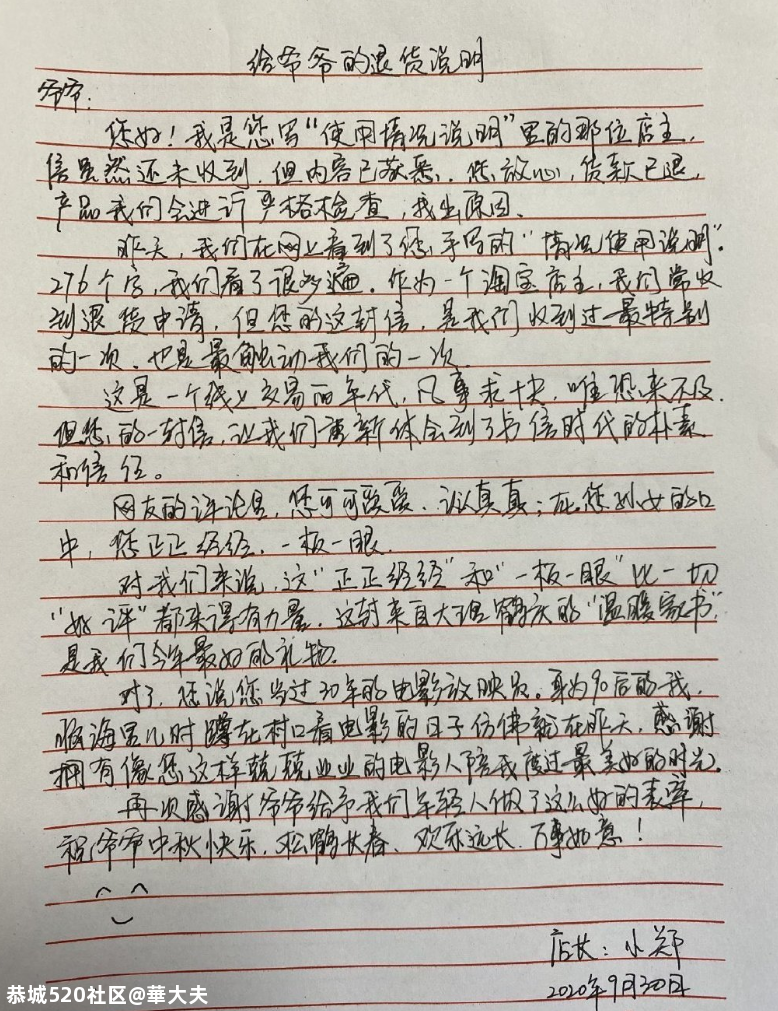 给爷爷的退货说明
爷爷：
您好！我是您写“使用情况说明”里的那位店主，
信虽然还未收到，但内容已获悉。您放心，货款已退，
产品我们会进行严格检查，找出原因。
昨天，我们在网上看到了您手写的“情况使用说明”。
276个字，我们看了很多遍。作为一个淘宝店主，我们常收
到退货申请，但您的这封信，是我们收到过最特别
的一次，也是最触动我们的一次。
这是一个线上交易的年代，凡事求快，唯恐来不及。
但您的一封信，让我们重新体会到了书信时代的朴素
和信任。
网友的评论里，您可可爱爱、认认真真；在您孙女的口
中，您正正经经、一板一眼。
对我们来说，这“正正经经”和“一板一眼”比一切
“好评”都来得有力量。这封来自大理鹤庆的“温暖家书”，
是我们今年最好的礼物。
对了，您说您当过30年的电影放映员。身为90后的我，
脑海里儿时蹲在村口看电影的日子仿佛就在昨天，感谢
拥有像您这样兢兢业业的电影人陪我度过最美好的时光。
再次感谢爷爷给予我们年轻人做了这么好的表率，
祝爷爷中秋快乐，松鹤长春、欢乐远长、万事如意！
店长：小郑
2020年9月30日
恭城520社区@華大夫